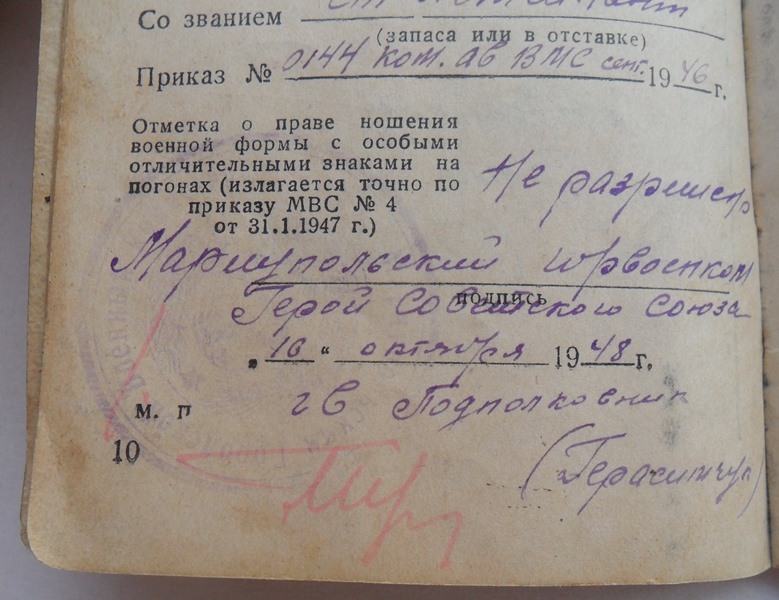 Со званием ст лейтенант
(запаса или в отставке)
Приказ № 0144 ком. ав ВМС сент. 1946 г.
Отметка о праве ношения
военной формы с особыми
отличительными знаками на
погонах (излагается точно по
приказу МВС № 4
от 31.1.1947 г.)
Не разрешено
Мариупольский горвоенком
подпись
Герой Советского Союза
„16" октября 1948 г.
м. п гв Подполковник
10
(Герасимчук)